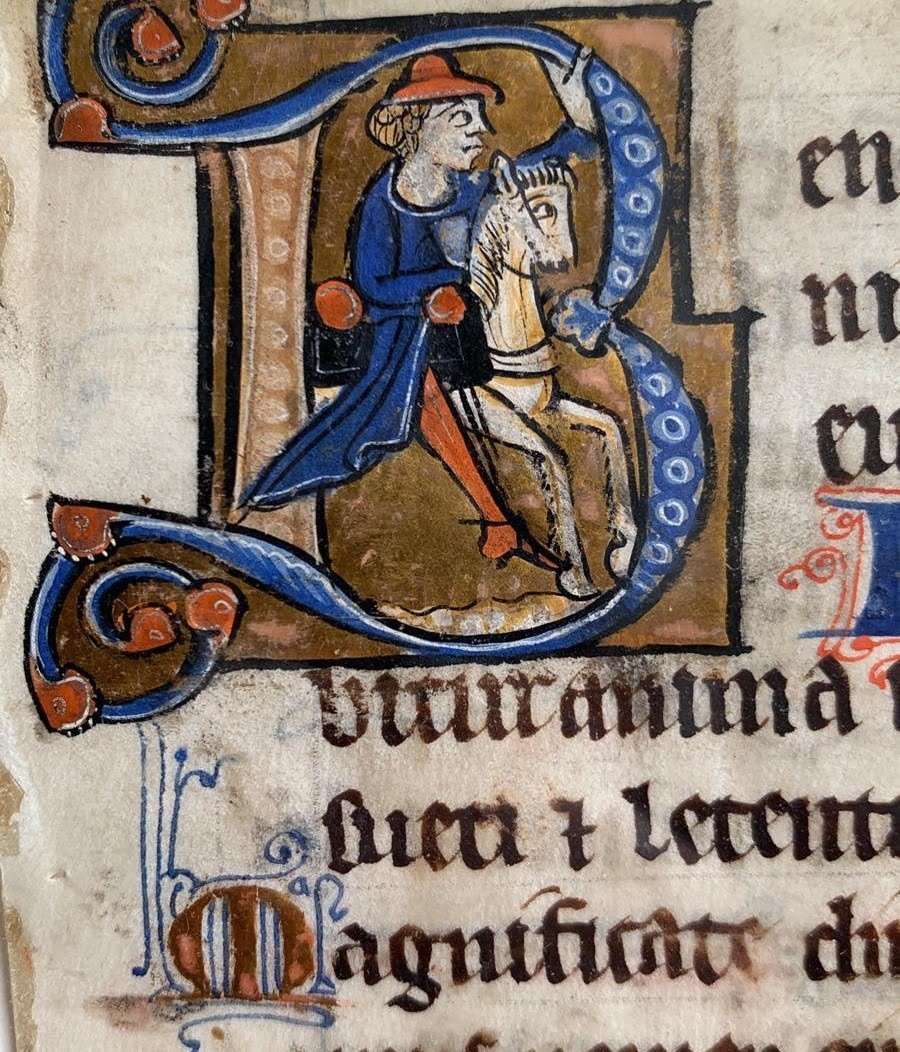 Ben
ni
I
bitur anima
sueti ⁊ letent
Magnificate